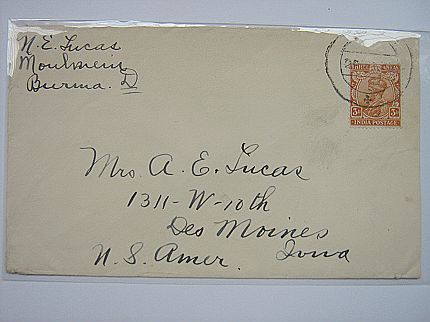 N. E. Lucas
Moulmein
Burma.
Mrs. A. E. Lucas
1311-W-10th
Des Moines
Iowa
U. S. Amer.
INDIA POSTAGE